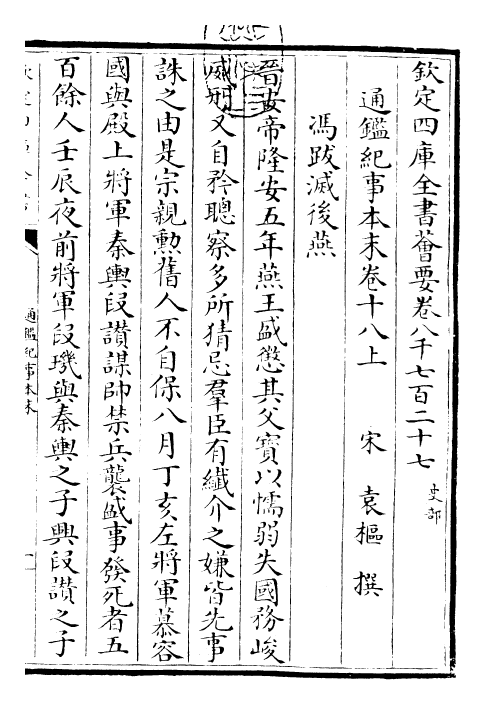 欽定四庫全書薈要卷八千七百二十七
史部
通鑑紀事本末卷十八上
宋 袁樞 撰
馮跋滅後燕
晉安帝隆安五年燕王盛懲其父寶以懦弱失國務峻
威刑又自矜聰察多所猜忌羣臣有纖介之嫌皆先事
誅之由是宗親勲舊人不自保八月丁亥左將軍慕容
國與殿上將軍秦輿段讚謀帥禁兵襲盛事發死者五
百餘人壬辰夜前將軍段璣與秦輿之子興段讚之子
通鑑紀事本末
一